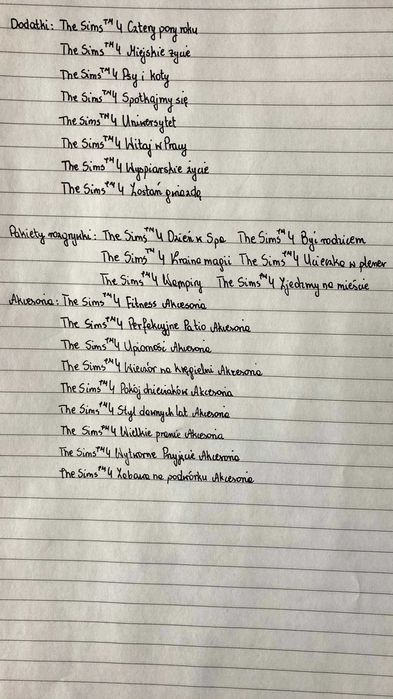 Dodatki: The Sims™ 4 Cztery pory roku
The Sims™ 4 Miejskie życie
The Sims™ 4 Psy i koty
The Sims™ 4 Spotkajmy się
The Sims™ 4 Uniwersytet
The Sims™ 4 Witaj w Pracy
The Sims™ 4 Wyspiarskie życie
The Sims™ 4 Zostań gwiazdą
Pakiety rozgrywki: The Sims™ 4 Dzień w Spa The Sims™ 4 Być rodzicem
The Sims™ 4 Kraina magii The Sims™ 4 Ucieczka w plener
The Sims™ 4 Wampiry The Sims™ 4 Zjedzmy na mieście
Akcesoria: The Sims™ 4 Fitness Akcesoria
The Sims™ 4 Perfekcyjne Patio Akcesoria
The Sims™ 4 Upiorność Akcesoria
The Sims™ 4 Wieczór na kręgielni Akcesoria
The Sims™ 4 Pokój dzieciaków Akcesoria
The Sims™ 4 Styl dawnych lat Akcesoria
The Sims™ 4 Wielkie pranie Akcesoria
The Sims™ 4 Wytworne Przyjęcie Akcesoria
The Sims™ 4 Zabawa na podwórku Akcesoria